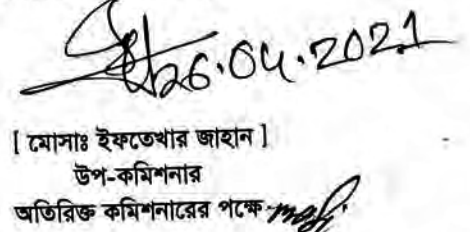 26.04.2021
[ মোসাঃ ইফতেখার জাহান ]
উপ-কমিশনার
অতিরিক্ত কমিশনারের পক্ষে